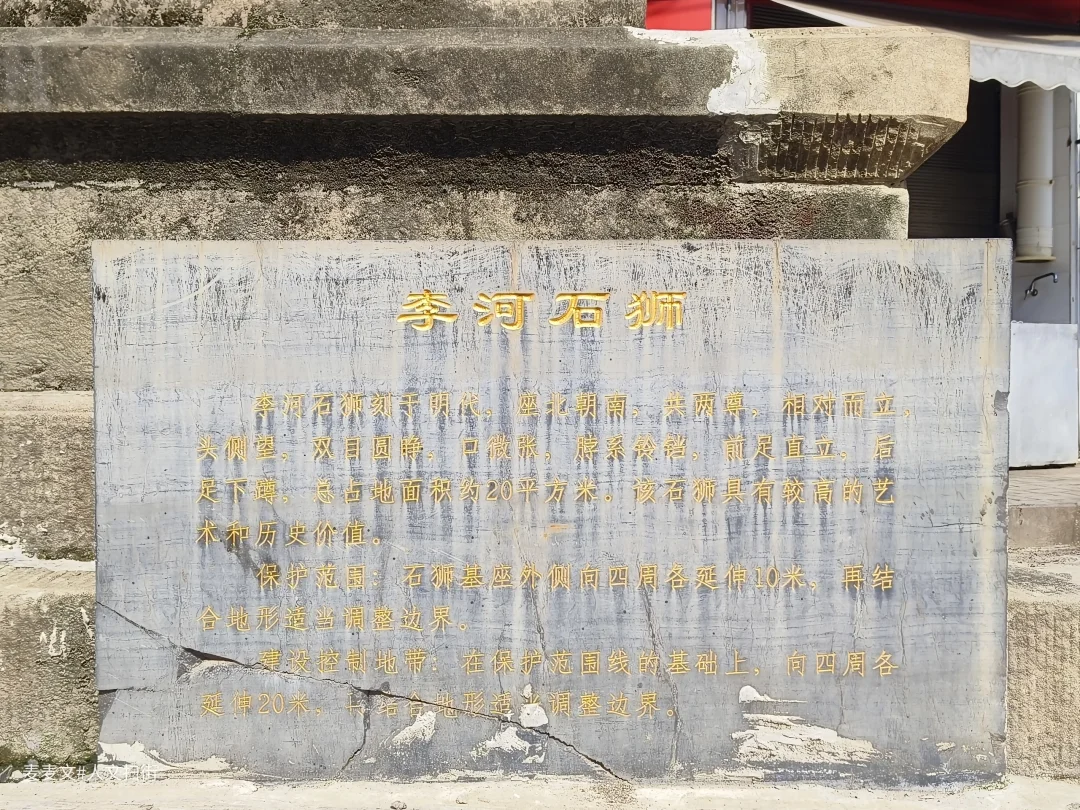 李河石狮
李河石狮刻于明代，座北朝南，共两尊，相对而立，
头侧望，双目圆睁，口微张，脖系铃铛，前足直立，后
足下蹲，总占地面积约20平方米。该石狮具有较高的艺
术和历史价值。
保护范围：石狮基座外侧向四周各延伸10米，再结
合地形适当调整边界。
建设控制地带：在保护范围线的基础上，向四周各
延伸20米，结合地形适当调整边界。
麦麦文#人文扫街